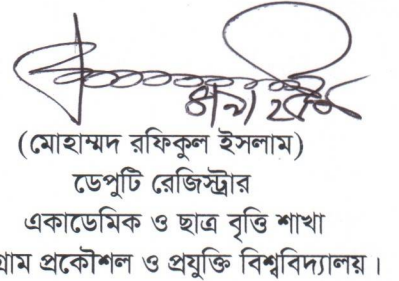 (মোহাম্মদ রফিকুল ইসলাম)
ডেপুটি রেজিস্ট্রার
একাডেমিক ও ছাত্র বৃত্তি শাখা
গ্রাম প্রকৌশল ও প্রযুক্তি বিশ্ববিদ্যালয়।